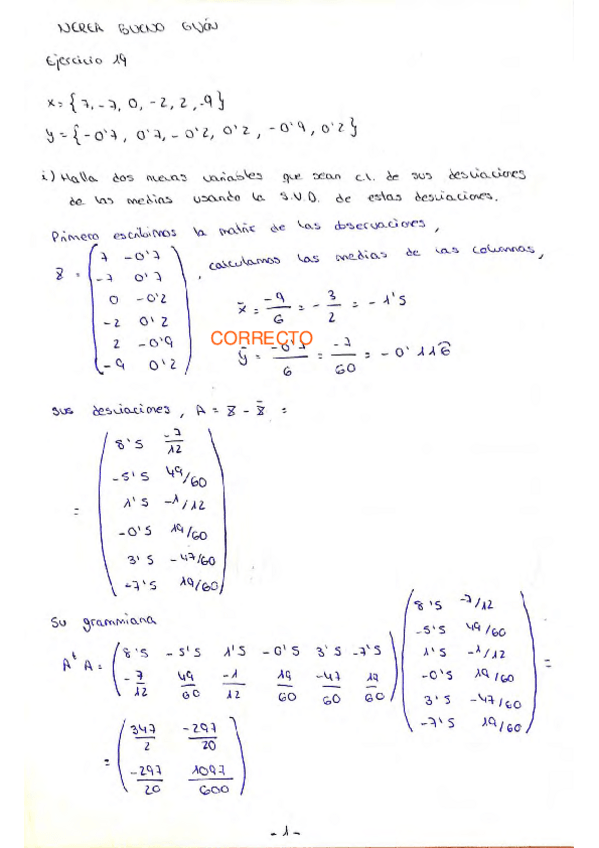 NEREA BUENO GIJÓN
Ejercicio 19
x = {7, -7, 0, -2, 2, -9}
y = {-0'7, 0'7, -0'2, 0'2, -0'9, 0'2}
i) Halla dos nuevas variables que sean c.l. de sus desviaciones
de las medias usando la S.V.D. de estas desviaciones.
Primero escribimos la matriz de las observaciones,
Z = ( 7 -0'7 , calculamos las medias de las columnas,
-7 0'7
0 -0'2 x̄ = -9/6 = -3/2 = -1'5
-2 0'2
CORRECTO
2 -0'9 ȳ = -0'7/6 = -7/60 = -0'116
-9 0'2 )
Sus desviaciones, A = Z - Z̄ =
= ( 8'5 -7/12
-5'5 49/60
1'5 -1/12
-0'5 19/60
3'5 -47/60
-7'5 19/60 )
Su grammiana
AᵗA = ( 8'5 -5'5 1'5 -0'5 3'5 -7'5
-7/12 49/60 -1/12 19/60 -47/60 19/60 )
( 8'5 -7/12
-5'5 49/60
1'5 -1/12
-0'5 19/60
3'5 -47/60
-7'5 19/60 ) =
= ( 347/2 -297/20
-297/20 1097/600 )
-1-